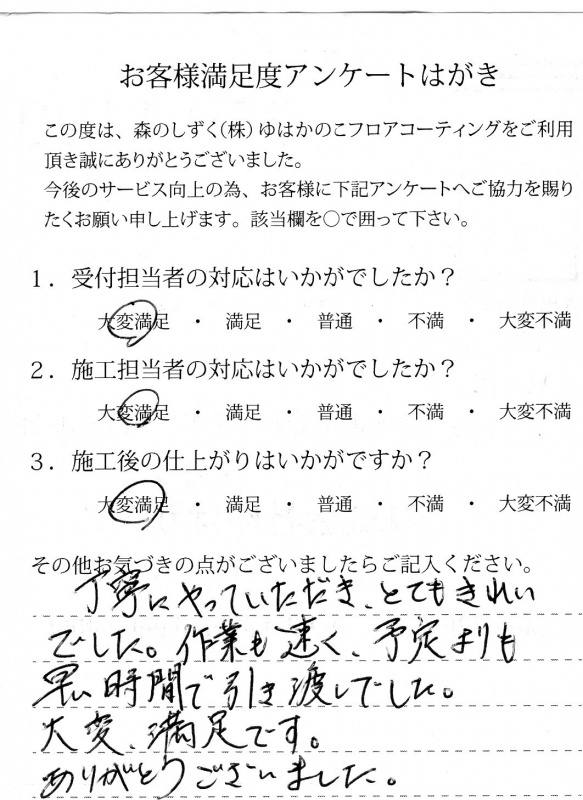 お客様満足度アンケートはがき
この度は、森のしずく(株)ゆはかのこフロアコーティングをご利用
頂き誠にありがとうございました。
今後のサービス向上の為、お客様に下記アンケートへご協力を賜り
たくお願い申し上げます。該当欄を〇で囲って下さい。
1．受付担当者の対応はいかがでしたか？
大変満足 ・ 満足 ・ 普通 ・ 不満 ・ 大変不満
2．施工担当者の対応はいかがでしたか？
大変満足 ・ 満足 ・ 普通 ・ 不満 ・ 大変不満
3．施工後の仕上がりはいかがですか？
大変満足 ・ 満足 ・ 普通 ・ 不満 ・ 大変不満
その他お気づきの点がございましたらご記入ください。
丁寧にやっていただき、とてもきれい
でした。作業も速く、予定よりも
早い時間で引き渡しでした。
大変、満足です。
ありがとうございました。